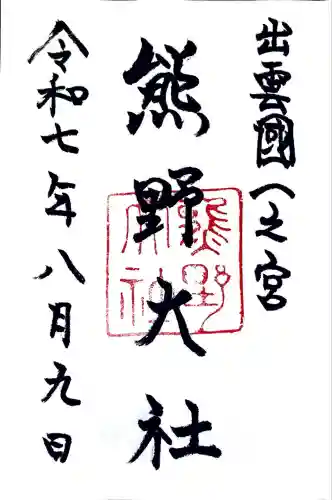 出雲國一之宮
熊野大社
熊野大社
令和七年八月九日